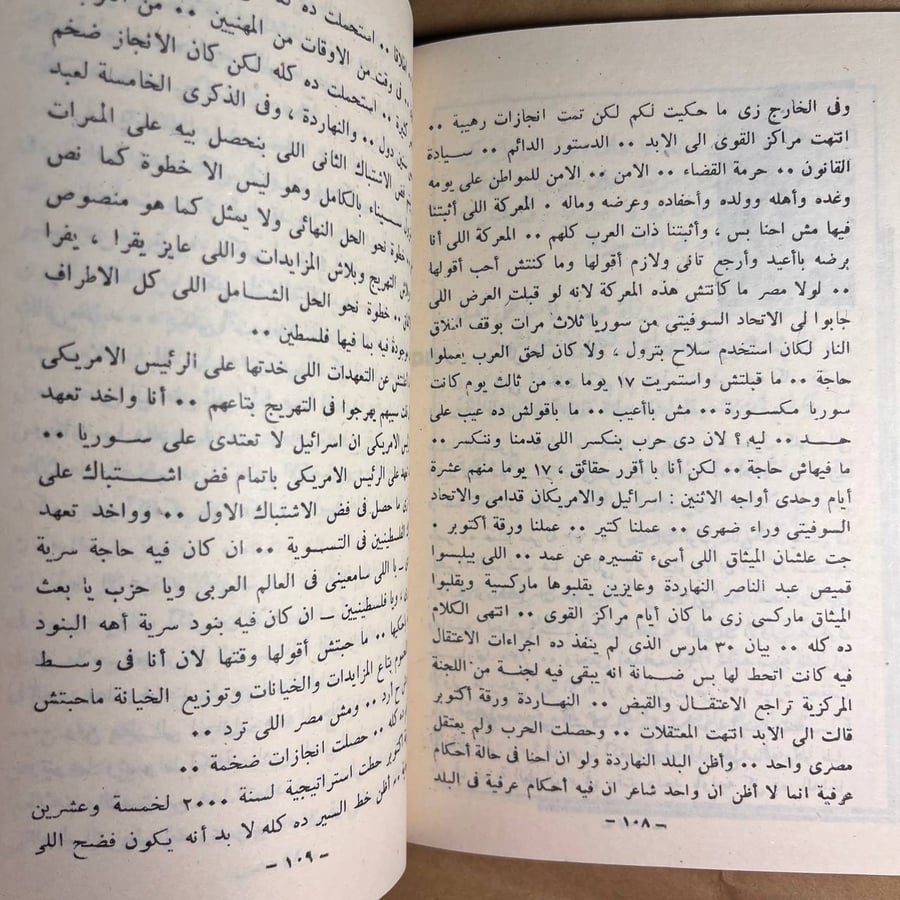 وفى الخارج زى ما حكيت لكم لكن تمت انجازات رهيبة ٠٠
انتهت مراكز القوى الى الابد ٠٠ الدستور الدائم ٠٠ سيادة
القانون ٠٠ حرمة القضاء ٠٠ الامن ٠٠ الامن للمواطن على يومه
وغده وأهله وولده وأحفاده وعرضه وماله ٠ المعركة اللى أثبتنا
فيها مش احنا بس ، وأثبتنا ذات العرب كلهم ٠٠ المعركة اللى أنا
برضه باأعيد وأرجع تانى ولازم أقولها وما كنتش أحب أقولها
٠٠ لولا مصر ما كانتش هذه المعركة لانه لو قبلت العرض اللى
جابوا لى الاتحاد السوفيتى من سوريا ثلاث مرات بوقف اطلاق
النار لكان استخدم سلاح بترول ، ولا كان لحق العرب يعملوا
حاجة ٠٠ ما قبلتش واستمريت ١٧ يوما ٠٠ من ثالث يوم كانت
سوريا مكسورة ٠٠ مش باأعيب ٠٠ ما باقولش ده عيب على
حد ٠٠ ليه ؟ لان دى حرب بنكسر اللى قدمنا وننكسر ٠٠
ما فيهاش حاجة ٠٠ لكن أنا با أقرر حقائق ، ١٧ يوما منهم عشرة
أيام وحدى أواجه الاثنين : اسرائيل والامريكان قدامى والاتحاد
السوفيتى وراء ضهرى ٠٠ عملنا كتير ٠٠ عملنا ورقة أكتوبر ٠
جت علشان الميثاق اللى أسىء تفسيره عن عمد ٠٠ اللى يبلبسوا
قميص عبد الناصر النهاردة وعايزين يقلبوها ماركسية ويقلبوا
الميثاق ماركسي زى ما كان أيام مراكز القوى ٠٠ انتهى الكلام
ده كله ٠٠ بيان ٣٠ مارس الذى لم ينفذ ده اجراءات الاعتقال
فيه كانت اتحط لها بس ضمانة انه يبقى فيه لجنة من اللجنة
المركزية تراجع الاعتقال والقبض ٠٠ النهاردة ورقة أكتوبر
قالت الى الابد انتهت المعتقلات ٠٠ وحصلت الحرب ولم يعتقل
مصرى واحد ٠٠ وأظن البلد النهاردة ولو ان احنا فى حالة أحكام
عرفية انما لا أظن ان واحد شاعر ان فيه أحكام عرفية فى البلد
– ١٠٨ –
٠٠ استحملت ده
٠٠ فى وقت من الاوقات من المهنيين ٠٠ من
كبيرة ٠٠ استحملت ده كله لكن كان الانجاز ضخم
دول ٠٠ والنهاردة ، وفى الذكرى الخامسة لعبد
فض الاشتباك الثانى اللى بنحصل بيه على الممرات
سيناء بالكامل وهو ليس الا خطوة كما نص
خطوة نحو الحل النهائى ولا يمثل كما هو منصوص
التهريج وبلاش المزايدات واللى عايز يقرا ، يقرا
٠٠ خطوة نحو الحل الشامل اللى كل الاطراف
فيه بما فيها فلسطين ٠٠
عن التعهدات اللى خدتها على الرئيس الامريكى
سيبهم يهرجوا فى التهريج بتاعهم ٠٠ أنا واخد تعهد
الامريكى ان اسرائيل لا تعتدى على سوريا ٠٠
على الرئيس الامريكى باتمام فض اشتباك على
ما حصل فى فض الاشتباك الاول ٠٠ وواخد تعهد
الفلسطينيين فى التسوية ٠٠ ان كان فيه حاجة سرية
يا اللى سامعينى فى العالم العربى ويا حزب يا بعث
ويا فلسطينيين – ان كان فيه بنود سرية أهه البنود
٠٠ ما حبتش أقولها وقتها لان أنا فى وسط
بتاع المزايدات والخيانات وتوزيع الخيانة ماحبتش
أرد ٠٠ ومش مصر اللى ترد ٠٠
كله ٠٠ حصلت انجازات ضخمة ٠٠
أكتوبر حطت استراتيجية لسنة ٢٠٠٠ لخمسة وعشرين
أظن خط السير ده كله لا بد أنه يكون فضح اللى
– ١٠٩ –